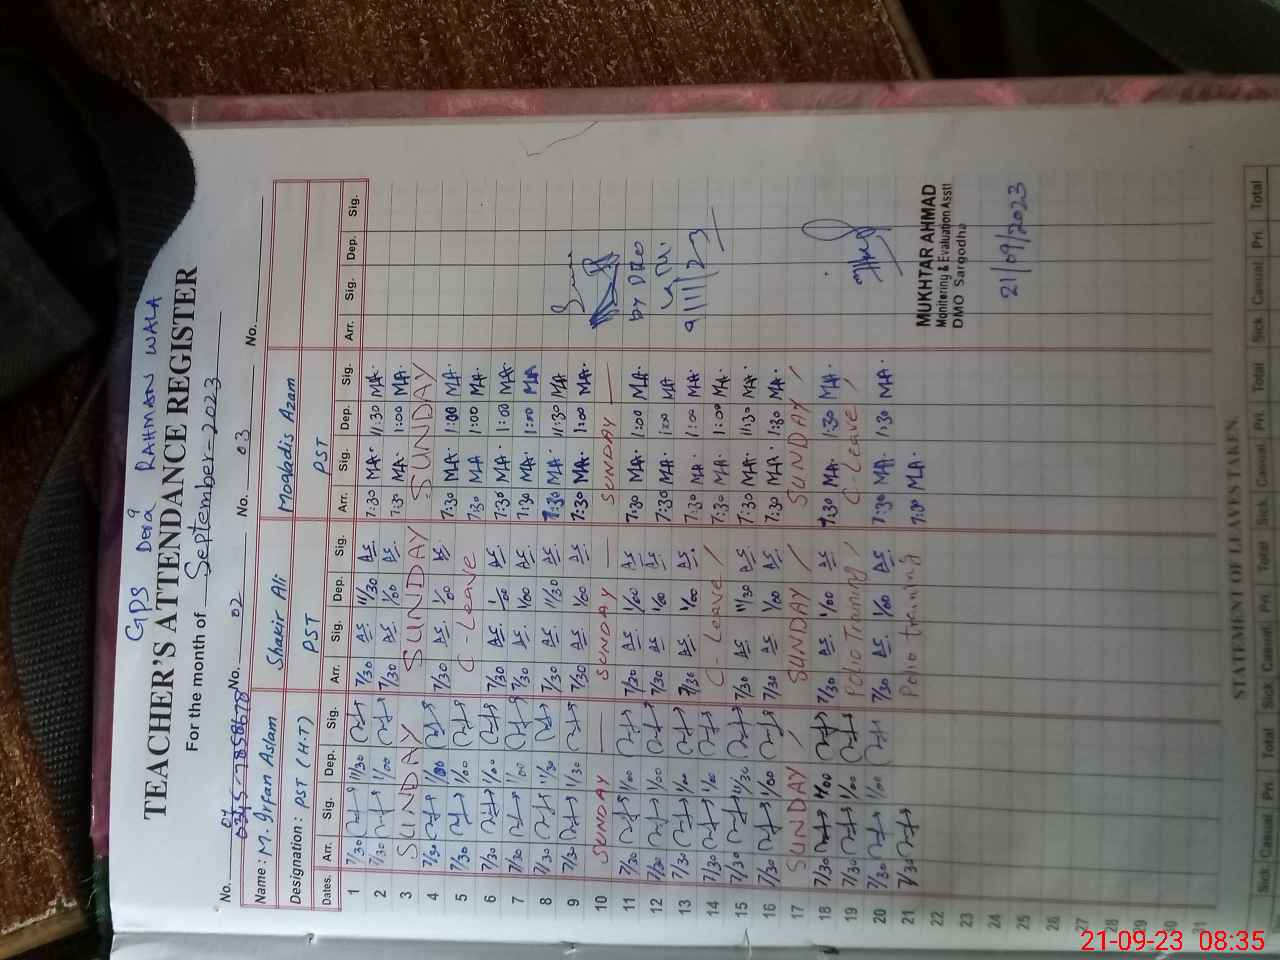 GPS Dera RAHMAN WALA
TEACHER'S ATTENDANCE REGISTER
For the month of September-2023
No. 01 No. 02 No. 03 No.
Name: M. Irfan Aslam Shakir Ali Moqadis Azam
Designation: PST (H.T) PST PST
Dates. Arr. Sig. Dep. Sig. Arr. Sig. Dep. Sig. Arr. Sig. Dep. Sig. Arr. Sig. Dep. Sig.
1 7/30 11/30 7/30 A.S. 11/30 A.S. 7:30 MA. 11:30 MA.
2 7/30 1/00 7/30 A.S. 1/00 A.S. 7:30 MA. 1:00 MA.
3 SUNDAY SUNDAY SUNDAY
4 7/30 1/00 7/30 A.S. 1/00 A.S. 7:30 MA. 1:00 MA.
5 7/30 1/00 C-Leave 7:30 MA 1:00 MA.
6 7/30 1/00 7/30 A.S. 1/00 A.S. 7:30 MA. 1:00 MA.
7 7/30 1/00 7/30 A.S. 1/00 A.S. 7:30 MA. 1:00 MA
8 7/30 11/30 7/30 A.S. 11/30 A.S. 7:30 MA. 11:30 MA
9 7/30 1/30 7/30 A.S. 1/00 A.S. 7:30 MA. 1:00 MA.
10 SUNDAY SUNDAY SUNDAY
11 7/30 1/00 7/30 A.S. 1/00 A.S. 7:30 MA. 1:00 MA.
by
12 7/30 1/00 7/30 A.S. 1/00 A.S. 7:30 MA. 1:00 MA
13 7/30 1/00 7/30 A.S. 1/00 A.S. 7:30 MA. 1:00 MA.
9/11/23
14 7/30 1/00 C-Leave 7:30 MA. 1:00 MA.
15 7/30 11/30 7/30 A.S. 11/30 A.S. 7:30 MA. 11:30 MA.
16 7/30 1/00 7/30 A.S. 1/00 A.S. 7:30 MA. 1:30 MA.
17 SUNDAY SUNDAY SUNDAY
18 7/30 1/00 7/30 A.S. 1/00 A.S. 7:30 MA. 1:30 MA.
19 7/30 1/00 Polio Training C-Leave
20 7/30 1/00 7/30 A.S. 1/00 A.S. 7:30 MA. 1:30 MA.
21 7/30 Polio training 7:30 MA.
MUKHTAR AHMAD
Monitoring & Evaluation Asstt
DMO Sargodha
22
23
24
21/09/2023
25
26
27
28
29
30
31
STATEMENT OF LEAVES TAKEN
Sick Casual Pri. Total Sick Casual Pri. Total Sick Casual Pri. Total Sick Casual Pri. Total
21-09-23 08:35